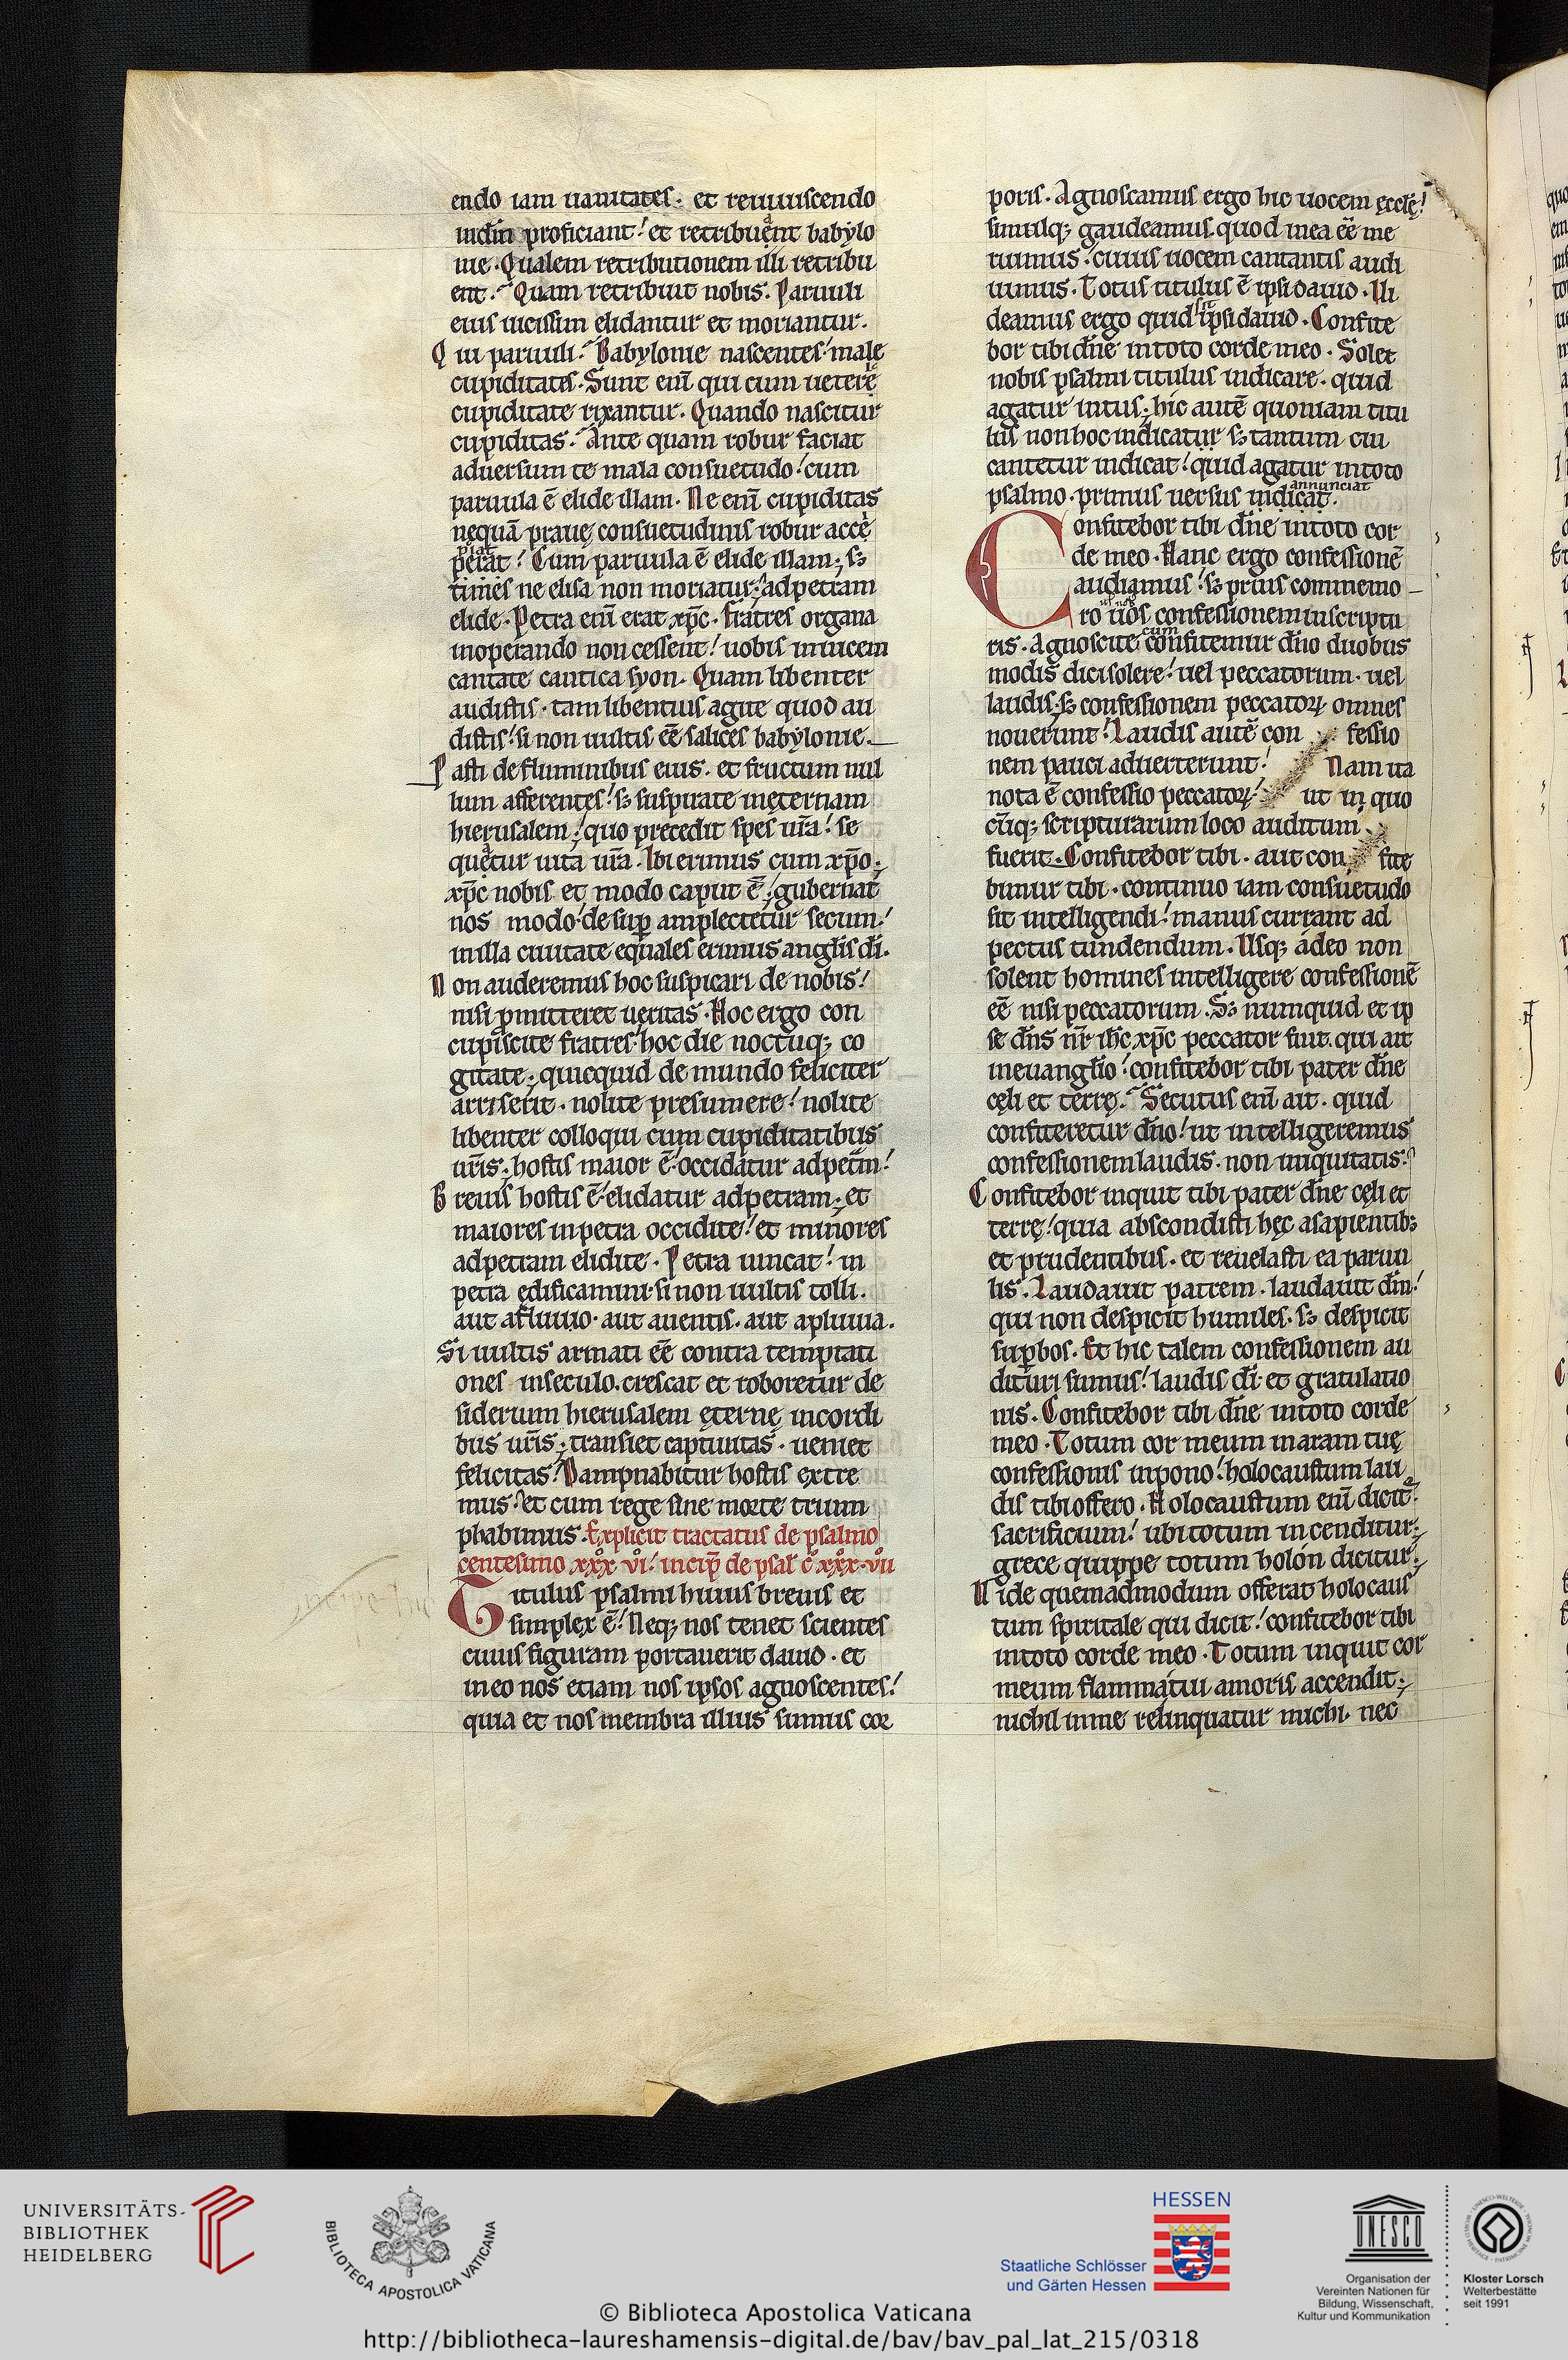 endo iam uanitates. et reuiuiscendo
iudm̄ proficiant! et retribuent babylo
nie. Qualem retributionem illi retribu
ent. Quam retribuit nobis. Paruuli
eius uicissim elidantur et moriantur.
Qui paruuli. Babylonie nascentes! male
cupiditates. Sunt eni̅ qui cum uetere
cupiditate rixantur. Quando nascitur
cupiditas. Ante quam robur faciat
aduersum te mala consuetudo! cum
paruula ē elide illam. Ne eni̅ cupiditas
nequā prauę consuetudinis robur acce
piat
perat! Cum paruula ē elide illam; sꝫ
times ne elisa non moriatur; ad petram
elide. Petra eni̅ erat xp̄c. fratres organa
inoperando non cessent! uobis inuicem
cantate cantica syon. Quam libenter
audistis. tam libentius agite quod au
distis! si non uultis eē salices babylonie.
Pasti de fluminibus eius. et fructum nul
lum afferentes! sꝫ suspirate in ęternam
hierusalem; quo precedit spes ur̄a! se
quetur uita ur̄a. Ibi erimus cum xp̄o;
xp̄c nobis et modo caput ē; gubernat
nos modo. desup̱ amplectetur secum!
in illa ciuitate equales erimus angl̄is dī.
Non auderemus hoc suspicari de nobis!
nisi p̱mitteret ueritas. Hoc ergo con
cupiscite fratres! hoc die noctuqꝫ co
gitate; quicquid de mundo feliciter
arriserit. nolite presumere! nolite
libenter colloqui cum cupiditatibus
ur̄is; hostis maior ē! occidatur ad pet̄m!
Breuis hostis ē! elidatur ad petram; et
maiores in petra occidite! et minores
ad petram elidite. Petra uincat! in
petra ędificamini. si non uultis tolli.
aut a fluuio. aut a uentis. aut a pluuia.
Si uultis armati eē contra temptati
ones in seculo. crescat et roboretur de
siderium hierusalem ęternę in cordi
bus ur̄is; transiet captiuitas. ueniet
felicitas! Dampnabitur hostis extre
mus! et cum rege sine morte trium
phabimus. Explicit tractatus de psalmo
centesimo xxx vi. incip̄ de psal c xxx vii
Titulus psalmi huius breuis et
simplex ē! Neqꝫ nos tenet scientes
cuius figuram portauerit dauid. et
in eo nos etiam nos ipsos agnoscentes!
quia et nos membra illius sumus cor
poris. Agnoscamus ergo hic uocem eccl̄ę!
simulqꝫ gaudeamus quod in ea eē me
ruimus. cuius uocem cantantis audi
uimus. Totus titulus ē ipsi dauid. Ui
deamus ergo quid sit ipsi dauid. Confite
bor tibi dn̄e in toto corde meo. Solet
nobis psalmi titulus indicare. quid
agatur intus; hic autē quoniam titu
lus non hoc indicatur sꝫ tantum cui
cantetur indicat! quid agatur in toto
annunciat
psalmo. primus uersus indicat.
Confitebor tibi dn̄e in toto cor
de meo. Hanc ergo confessionē
audiamus! sꝫ prius commemo
ro uos confessionem in scriptu
cum
ris. Agnoscite confitemur dn̄o duobus
modis dici solere! uel peccatorum. uel
laudis; sꝫ confessionem peccatoꝝ omnes
nouerunt! Laudis autē con fessio
nem pauci aduerterunt! Nam ita
nota ē confessio peccatoꝝ! ut in quo
cūqꝫ scripturarum loco auditum
fuerit. Confitebor tibi. aut con fite
bimur tibi. continuo iam consuetudo
sit intelligendi! manus currant ad
pectus tundendum. Usqꝫ adeo non
solent homines intelligere confessionē
eē nisi peccatorum. Sꝫ numquid et ip
se dn̄s nr̄ ih̄c xp̄c peccator fuit. qui ait
in euangl̄io! confitebor tibi pater dn̄e
cęli et terrę. Secutus eni̅ ait. quid
confiteretur dn̄o! ut intelligeremus
confessionem laudis. non iniquitatis.
Confitebor inquit tibi pater dn̄e cęli et
terrę! quia abscondisti hęc a sapientibꝫ
et prudentibus. et reuelasti ea paruu
lis. Laudauit patrem. laudauit dm̄!
qui non despicit humiles. sꝫ despicit
sup̱bos. Et hic talem confessionem au
dituri sumus! laudis dī. et gratulatio
nis. Confitebor tibi dn̄e in toto corde
meo. Totum cor meum in aram tuę
confessionis inpono! holocaustum lau
dis tibi offero. Holocaustum eni̅ dicit̄
sacrificium! ubi totum incenditur;
grece quippe totum holon dicitur.
Uide quemadmodum offerat holocaus
tum spiritale qui dicit! confitebor tibi
in toto corde meo. Totum inquit cor
meum flamma tui amoris accendit;
nichil in me relinquatur michi. nec
UNIVERSITÄTS-
BIBLIOTHEK
HEIDELBERG
BIBLIOTECA APOSTOLICA VATICANA
HESSEN
Staatliche Schlösser
und Gärten Hessen
UNESCO
Organisation der
Vereinten Nationen für
Bildung, Wissenschaft,
Kultur und Kommunikation
Kloster Lorsch
Welterbestätte
seit 1991
© Biblioteca Apostolica Vaticana
http://bibliotheca-laureshamensis-digital.de/bav/bav_pal_lat_215/0318